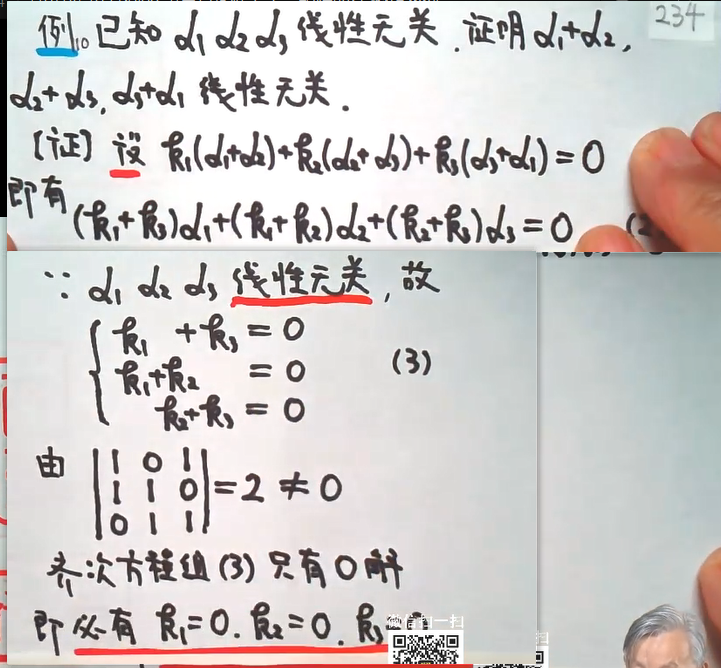 234
例10 已知 α1 α2 α3 线性无关. 证明 α1+α2,
α2+α3, α3+α1 线性无关.
[证] 设 k1(α1+α2)+k2(α2+α3)+k3(α3+α1)=0
即有 (k1+k3)α1+(k1+k2)α2+(k2+k3)α3=0
∵ α1 α2 α3 线性无关, 故
k1 +k3 = 0
k1+k2 = 0 (3)
k2+k3 = 0
由 |1 0 1|
|1 1 0| = 2 ≠ 0
|0 1 1|
齐次方程组(3) 只有0解
即必有 k1=0. k2=0. k3=
微信扫一扫